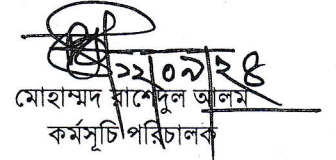 ২২।০৯।২৪
মোহাম্মদ রাশেদুল আলম
কর্মসূচি পরিচালক